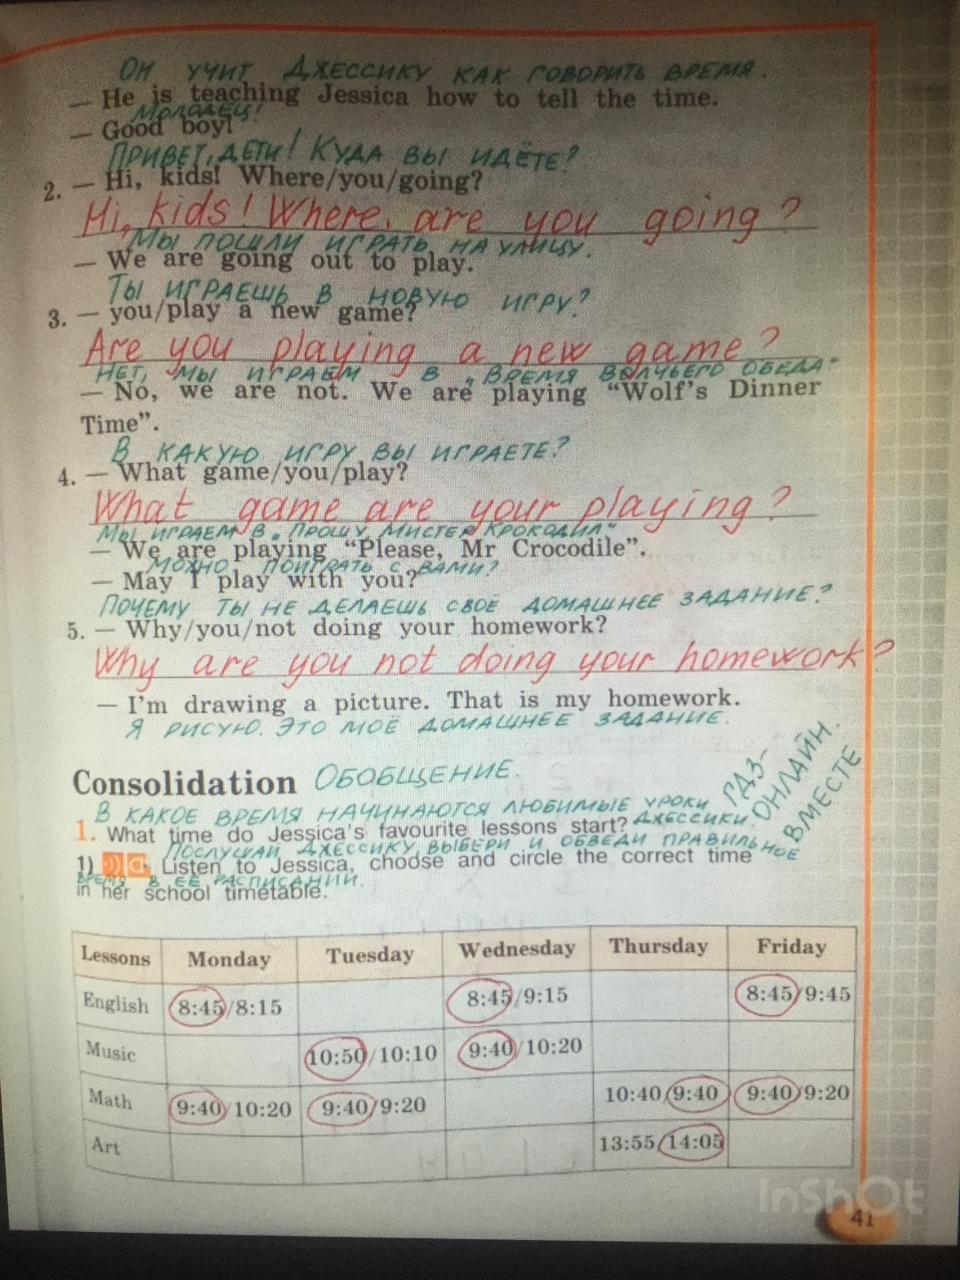 Он учит Джессику как говорить время.
— He is teaching Jessica how to tell the time.
Молодец!
— Good boy!
Привет, дети! Куда вы идёте?
2. — Hi, kids! Where/you/going?
Hi, kids! Where are you going?
Мы пошли играть на улицу.
— We are going out to play.
Ты играешь в новую игру?
3. — you/play a new game?
Are you playing a new game?
Нет, мы играем в „Время волчьего обеда"
— No, we are not. We are playing "Wolf's Dinner
Time".
В какую игру вы играете?
4. — What game/you/play?
What game are your playing?
Мы играем в „Прошу, Мистер Крокодил"
— We are playing "Please, Mr Crocodile".
Можно поиграть с вами?
— May I play with you?
Почему ты не делаешь своё домашнее задание?
5. — Why/you/not doing your homework?
Why are you not doing your homework?
— I'm drawing a picture. That is my homework.
Я рисую. Это моё домашнее задание.
Consolidation Обобщение.
ГДЗ-
ОНЛАЙН.
ВМЕСТЕ
В какое время начинаются любимые уроки
1. What time do Jessica's favourite lessons start? Джессики?
Послушай Джессику, выбери и обведи правильное
1) Listen to Jessica, choose and circle the correct time
время в её расписании.
in her school timetable.
Lessons Monday Tuesday Wednesday Thursday Friday
English 8:45/8:15 8:45/9:15 8:45/9:45
Music 10:50/10:10 9:40/10:20
Math 9:40/10:20 9:40/9:20 10:40/9:40 9:40/9:20
Art 13:55/14:05
InShOt
41